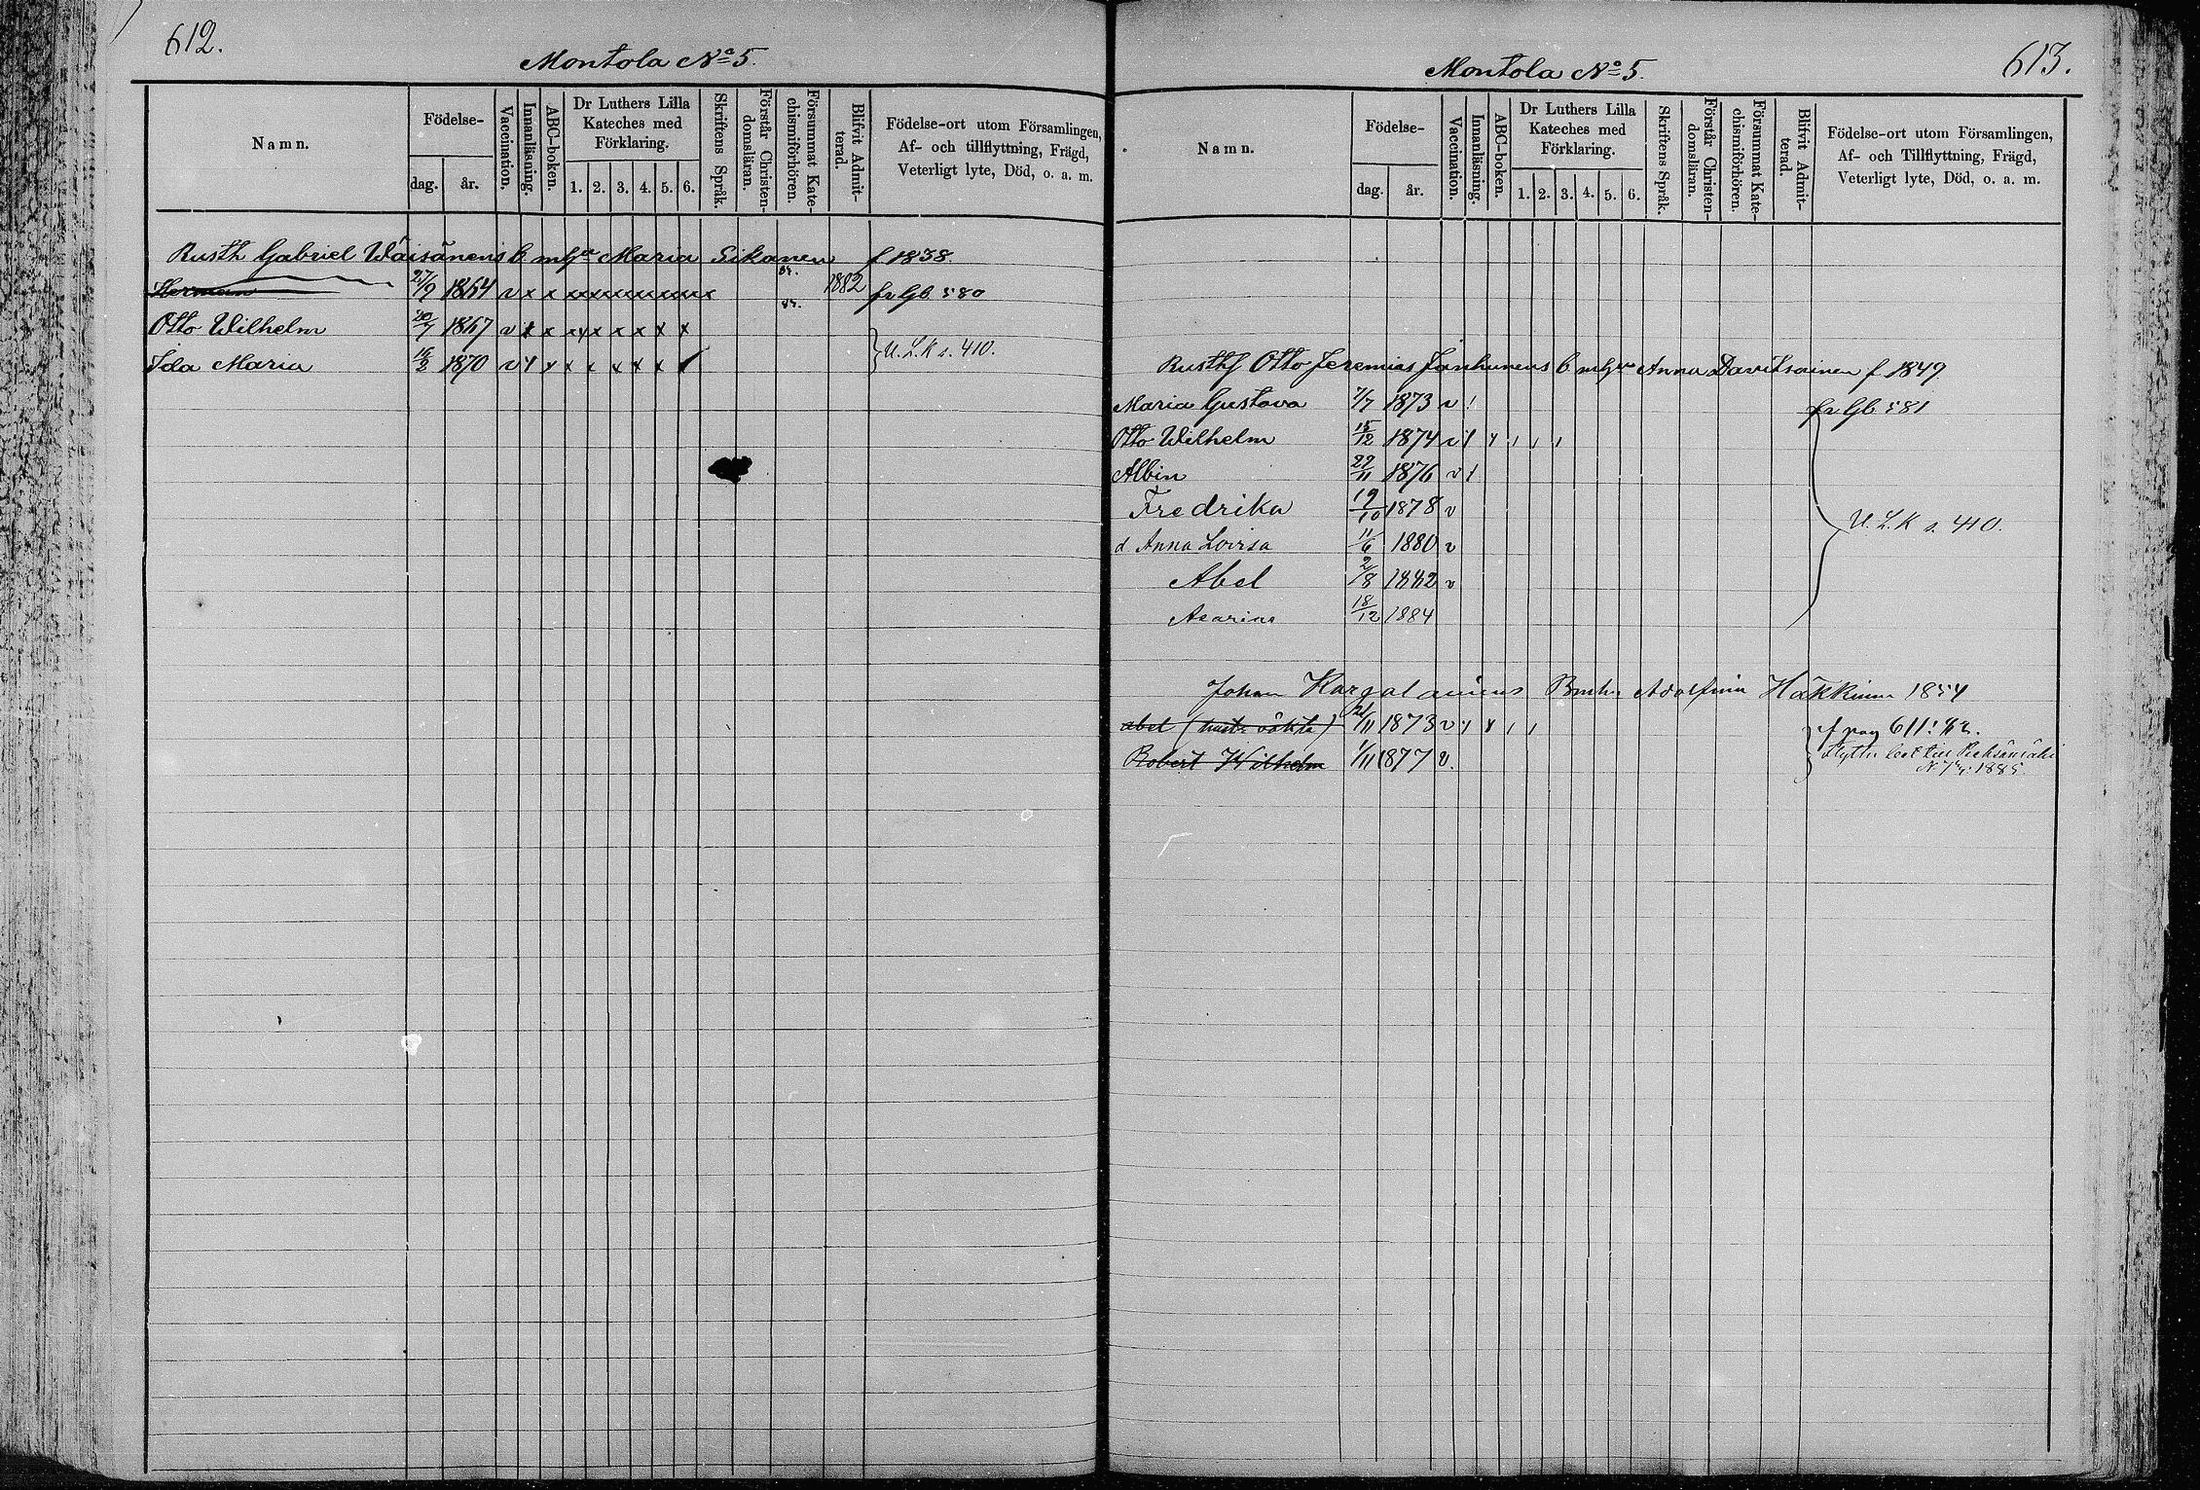 612.
Montola No 5.
Namn.
Födelse-
dag.
år.
Vaccination.
Innanläsning.
ABC-boken.
Dr Luthers Lilla
Kateches med
Förklaring.
1. 2. 3. 4. 5. 6.
Skriftens Språk.
Förstår Christen-
domsläran.
Försummat Kate-
chismiförhören.
Blifvit Admit-
terad.
Födelse-ort utom Församlingen,
Af- och tillflyttning, Frägd,
Veterligt lyte, Död, o. a. m.
Rusth Gabriel Wäisänens b m hu Maria Sikanen f 1838.
Herman 27/9 1864 v x x x x x x x x 1882 fr Gb 580
Otto Wilhelm 20/7 1867 v x x x x x x x x
U. L. K s. 410.
Ida Maria 15/2 1870 v x x x x x x x
613.
Montola No 5.
Namn.
Födelse-
dag.
år.
Vaccination.
Innanläsning.
ABC-boken.
Dr Luthers Lilla
Kateches med
Förklaring.
1. 2. 3. 4. 5. 6.
Skriftens Språk.
Förstår Christen-
domsläran.
Försummat Kate-
chismiförhören.
Blifvit Admit-
terad.
Födelse-ort utom Församlingen,
Af- och Tillflyttning, Frägd,
Veterligt lyte, Död, o. a. m.
Rusthf Otto Jeremias Janhunens b m hu Anna Davitsainen f 1849.
Maria Gustava 7/7 1873 v fr Gb 581
Otto Wilhelm 15/12 1874 v
Albin 22/11 1876 v
Fredrika 19/10 1878 v
U. L. K s. 410.
d Anna Lovisa 11/6 1880 v
Abel 2/8 1882 v
Asarias 18/12 1884
Johan Kargalainens Adolfina Häkkinen 1854
abel 1873 v f pag 611
Robert Wilhelm 1/11 1877 v.
till Pieksämäki
1885